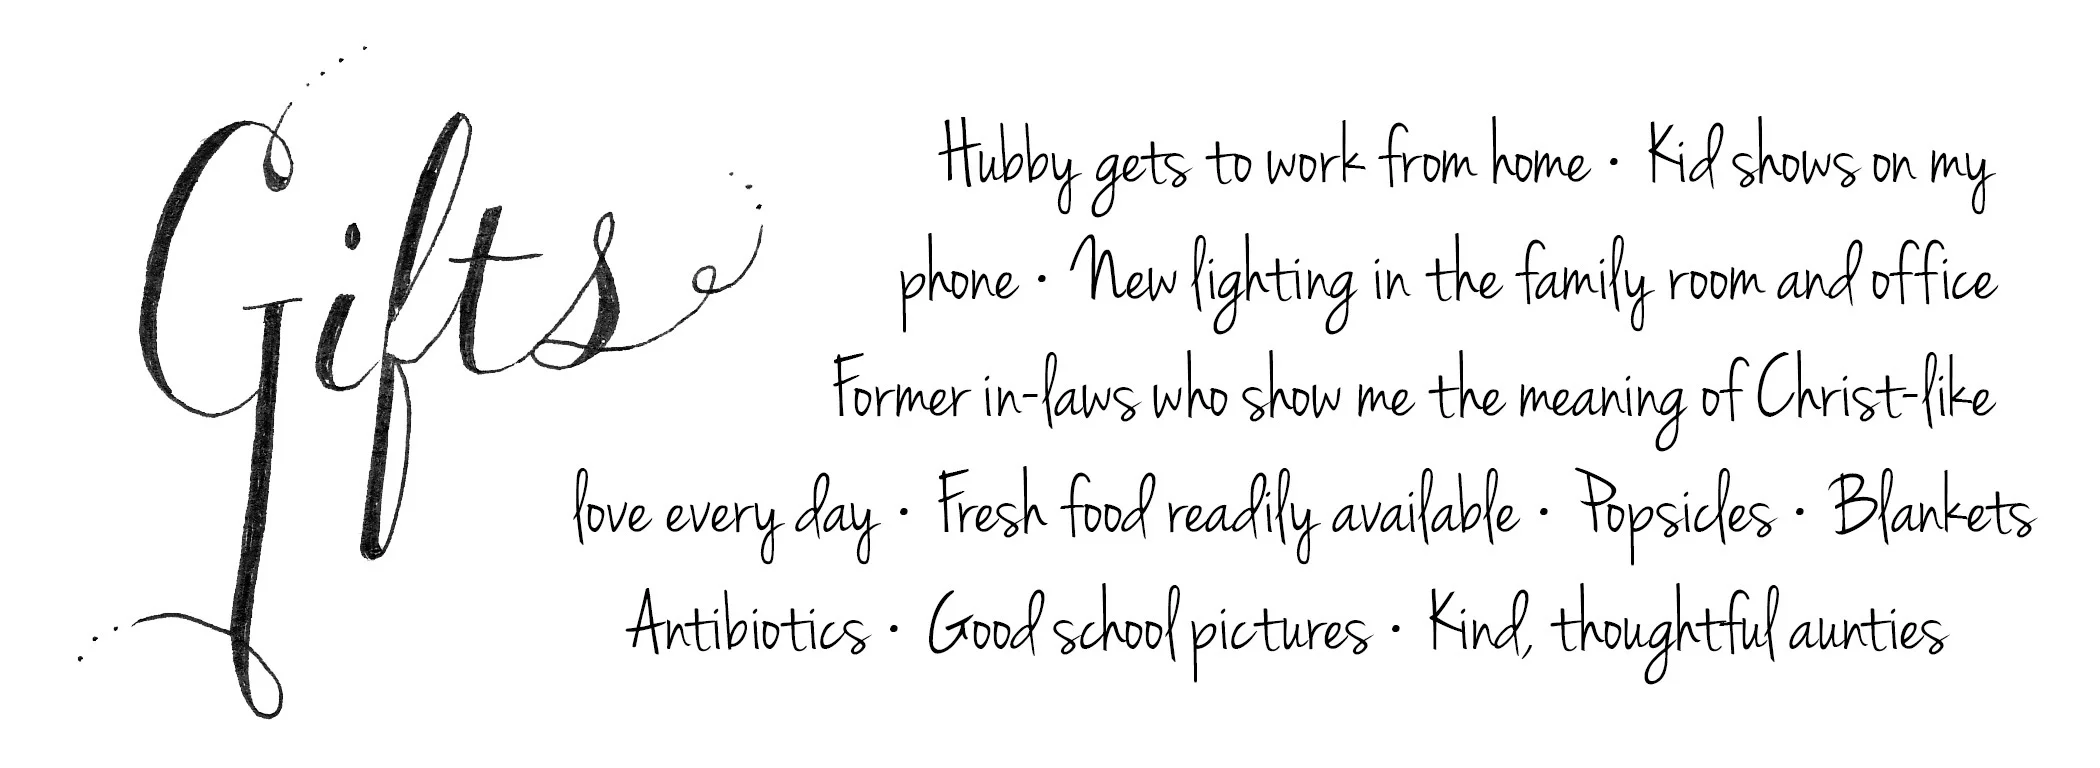 Gifts
Hubby gets to work from home • Kid shows on my
phone • New lighting in the family room and office
Former in-laws who show me the meaning of Christ-like
love every day • Fresh food readily available • Popsicles • Blankets
Antibiotics • Good school pictures • Kind, thoughtful aunties